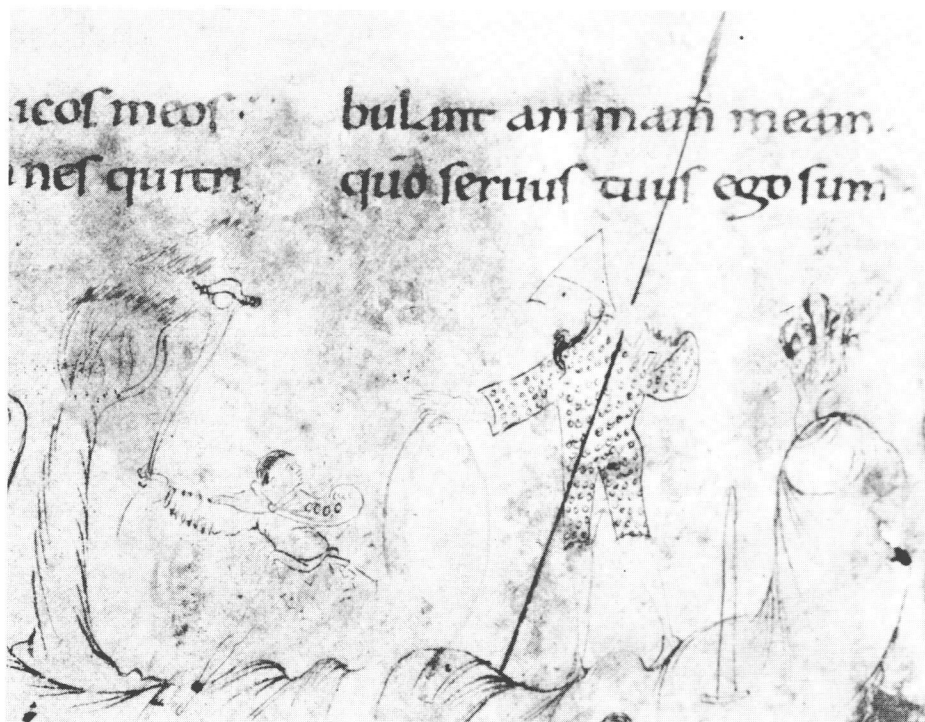 icos meos ·
nes qui tri
bulant animam meam .
quō seruus tuus ego sum